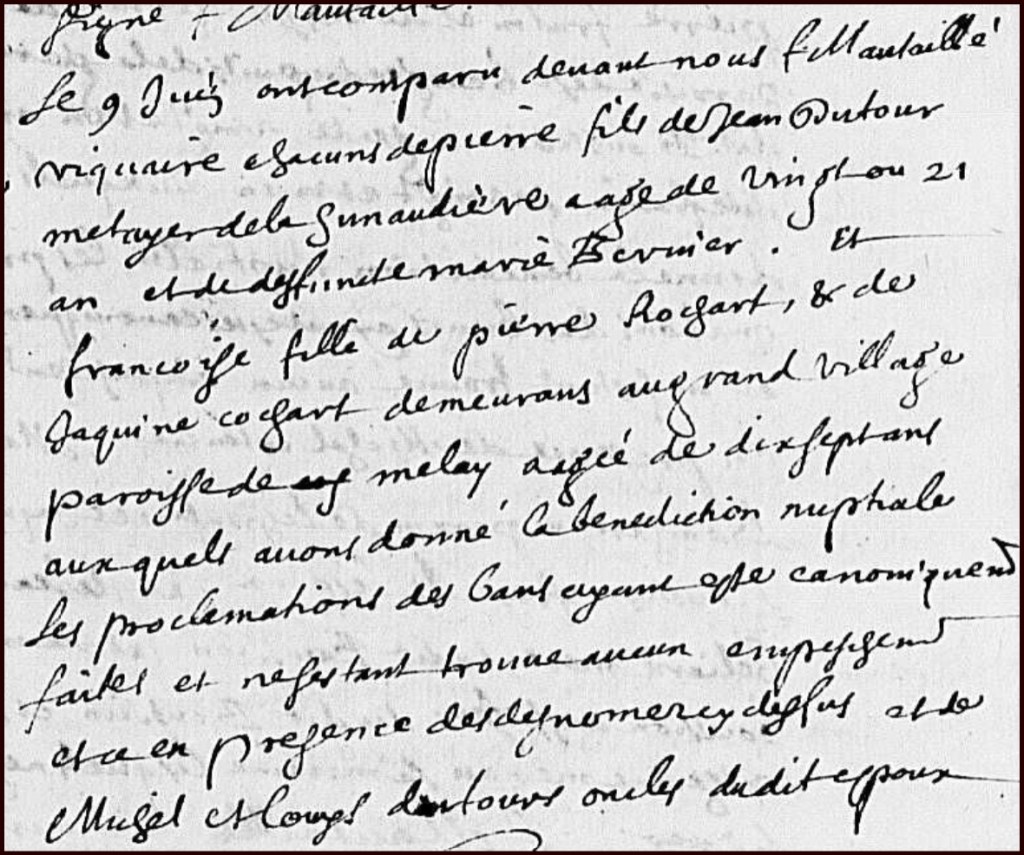 Signe f Mautaillé.
Le 9 Juin ont comparu devant nous f Mautaillé
viquaire chacuns de pierre fils de Jean Dutour
metayer de la Gunaudière aage de vingt ou 21
an et de deffuncte marie Bernier. Et
francoise fille de pierre Rochart, & de
Jaquine cochart demeurans au grand village
paroisse de melay aagée de dix sept ans
aux quels avons donné la benediction nuptiale
Les proclamations des bans ayant esté canoniquend
faites et ne sestant trouvé aucun empeschend
et ce en presence des desnomez cy dessus et de
Michel et Louys dutours oncles dudit espoux